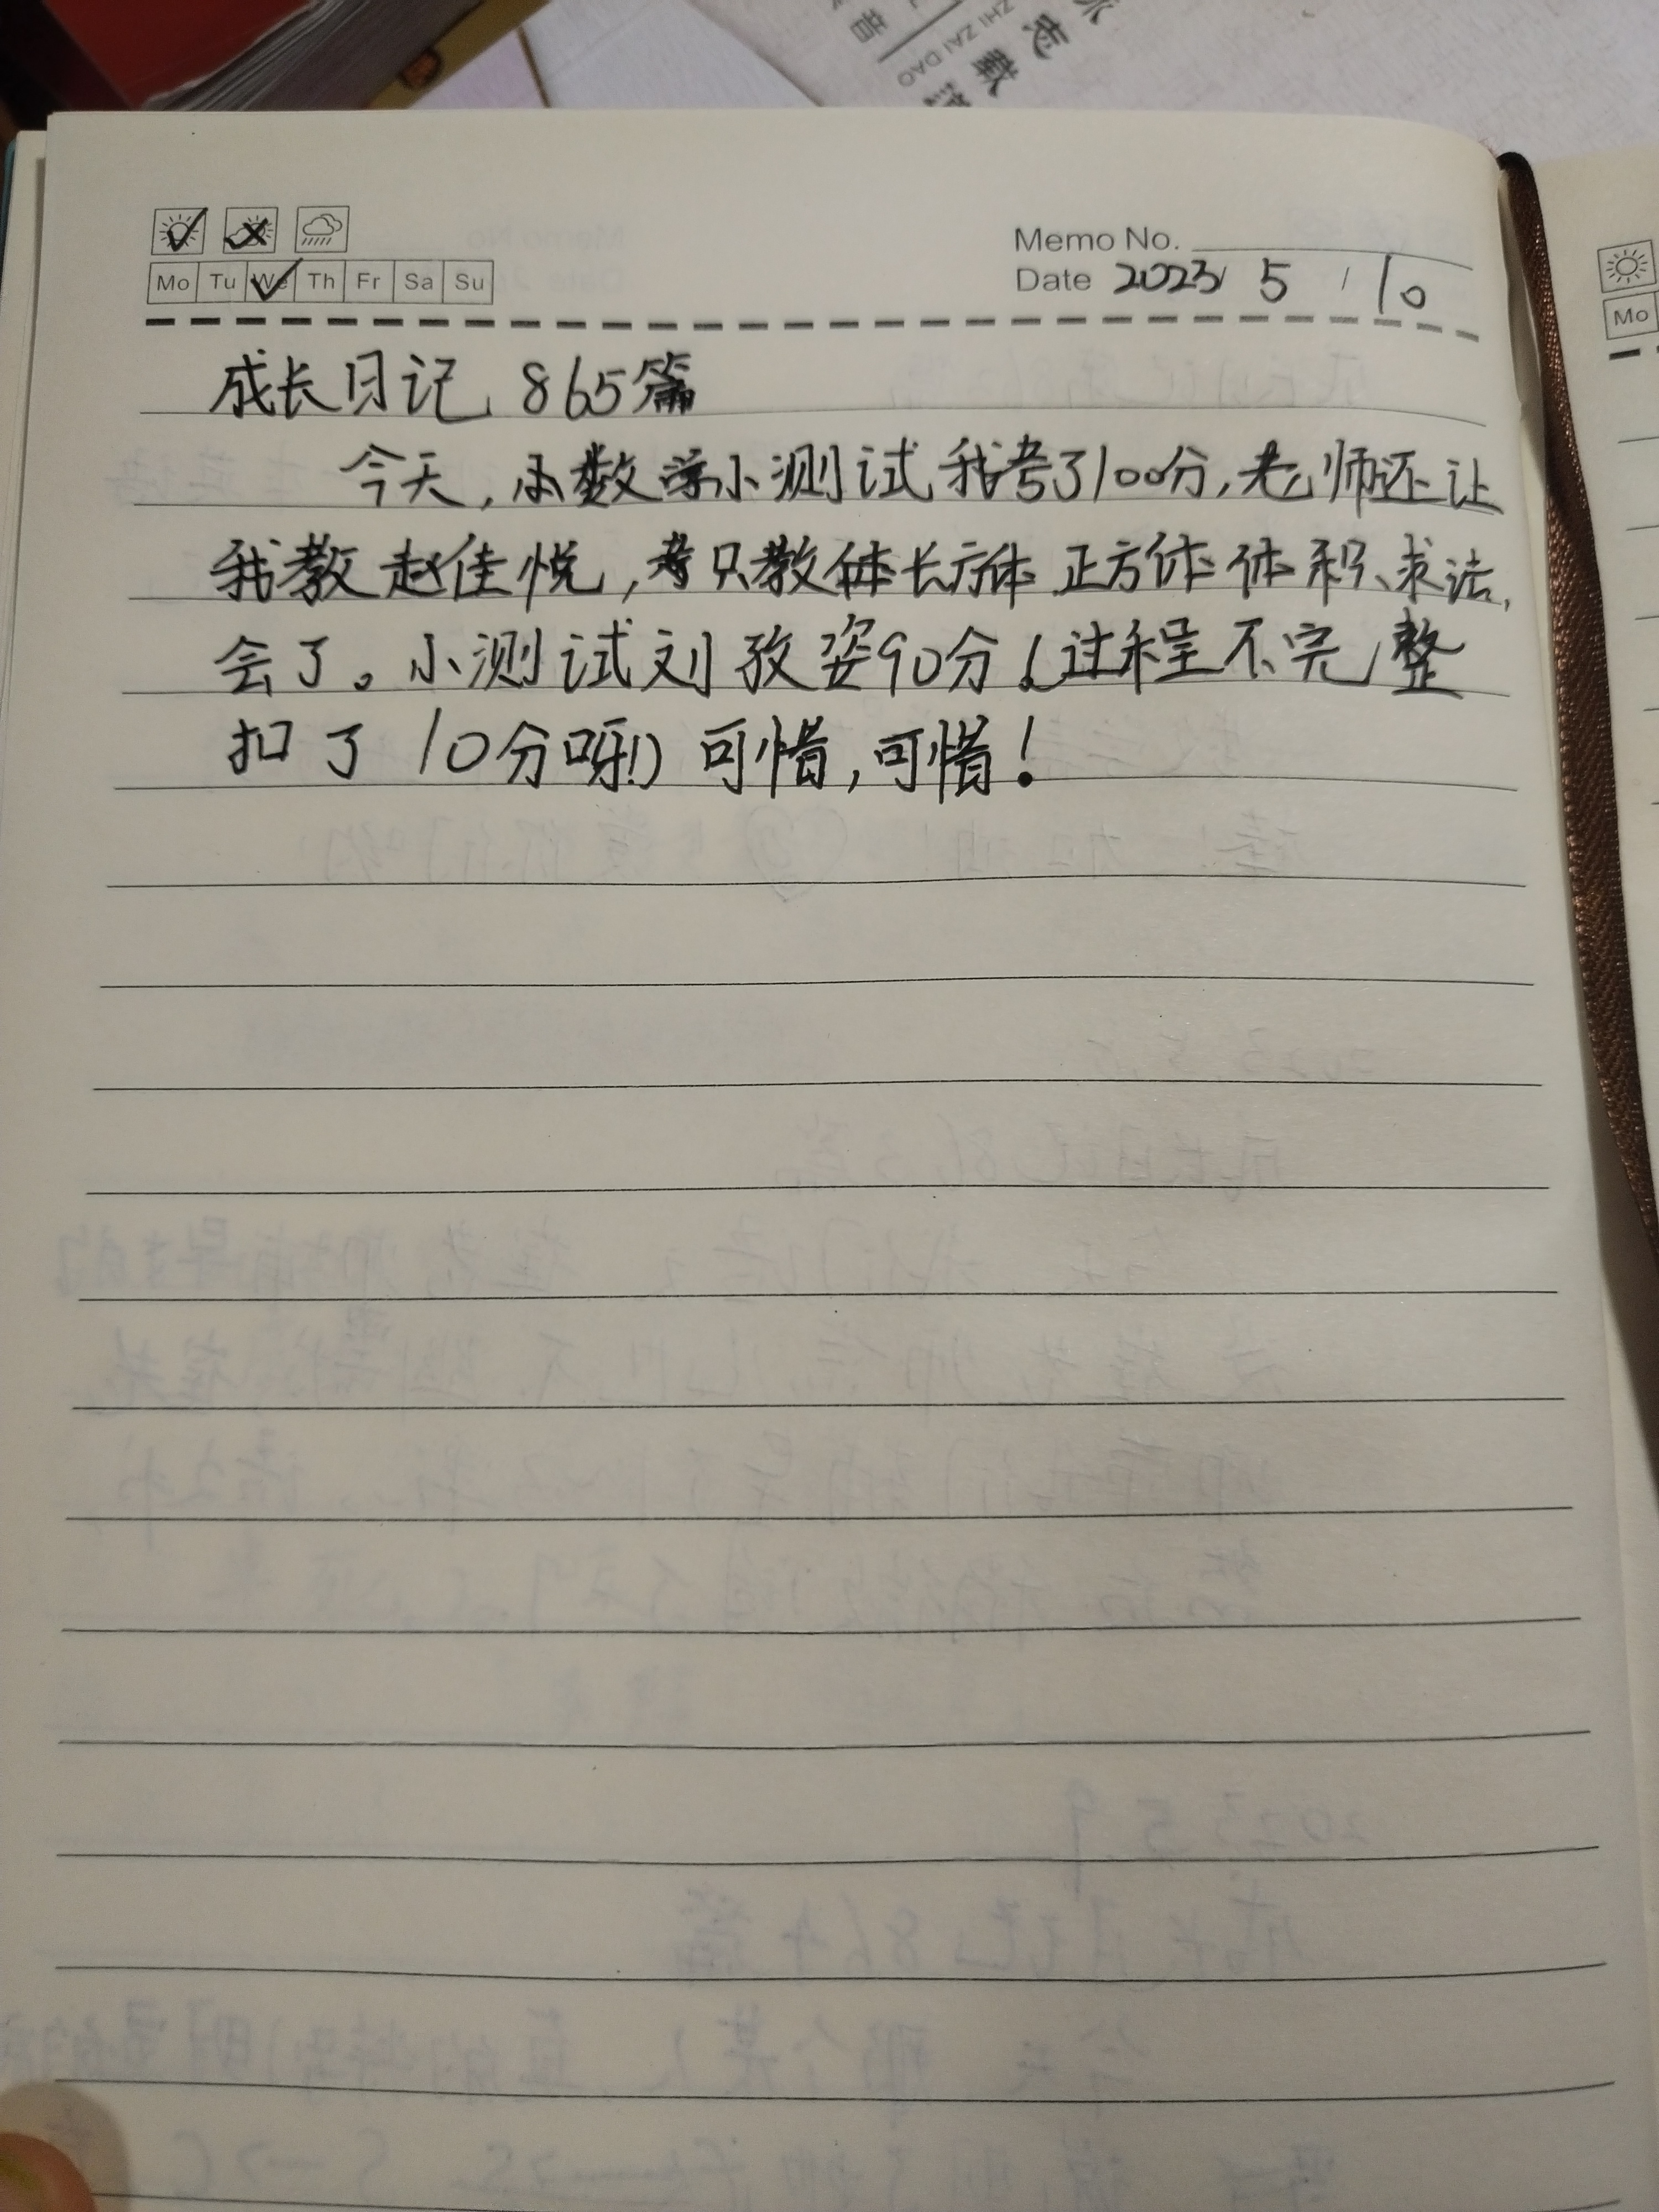 音
ZHI ZAI DAO
志载道
Mo Tu We Th Fr Sa Su
Memo No.
Date 2023/ 5 / 10
Mo
成长日记 865篇
今天,数学小测试我考了100分,老师还让
我教赵佳悦,只教长方体 正方体体积、求法,
会了。小测试刘孜姿90分!(过程不完整
扣了10分呀!) 可惜,可惜!